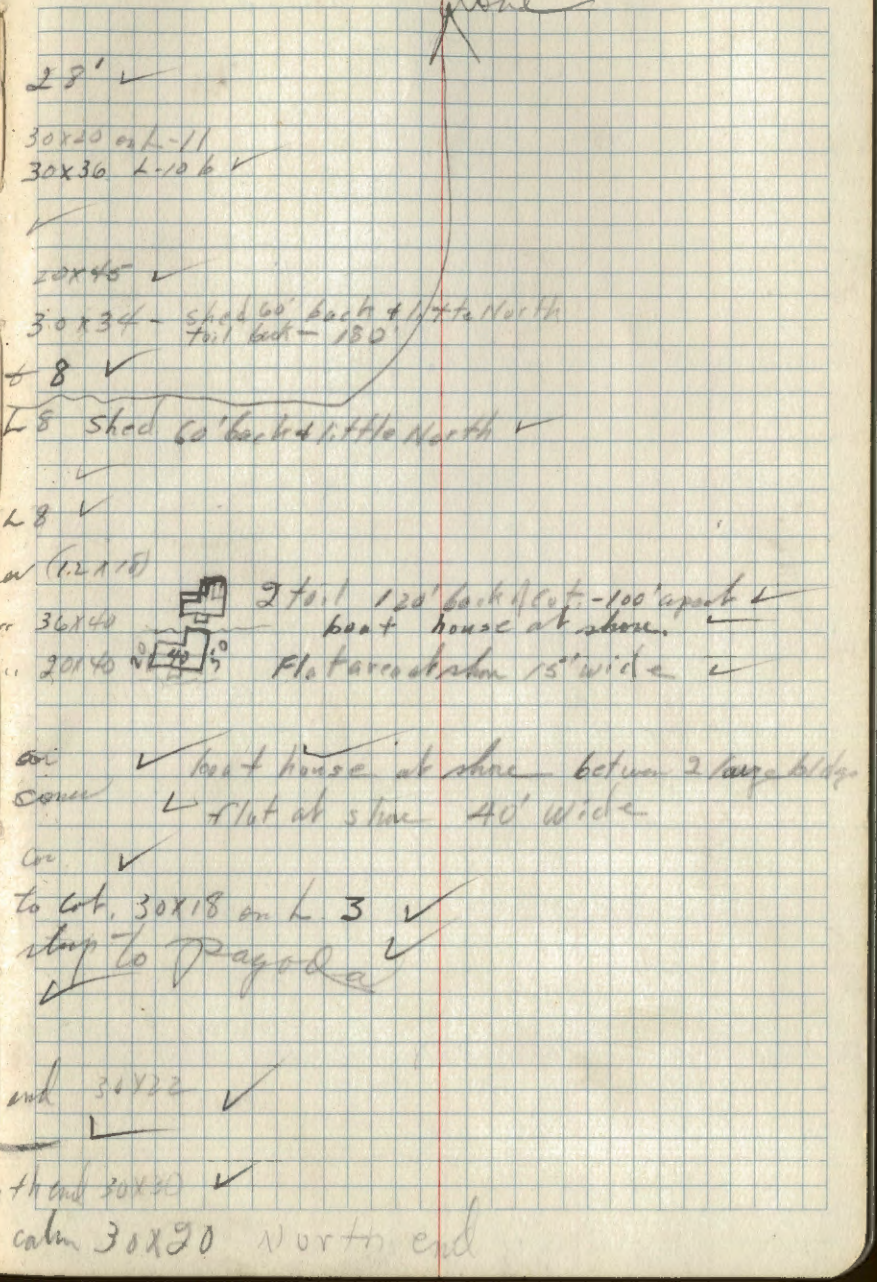 28' ✓
30x20 on L-11
30x36 L-10 b ✓
✓
20x45 ✓
30x34 - shed 60' back & little North
toil back - 180'
8 ✓
L 8 shed 60' back & little North ✓
✓
L 8 ✓
(12 x 18)
2 toil 120' back of cot. - 100' apart ✓
36x40 boat house at shore. ✓
" 20x40 20 40 30 Flat area at shore 15' wide ✓
✓ boat house at shore between 2 large bldgs
✓ flat at shore 40' wide
cor ✓
to cot. 30x18 on L. 3 ✓
step to Pagoda ✓
✓
end 30x22 ✓
✓
th end 30x30 ✓
cabin 30x20 North end